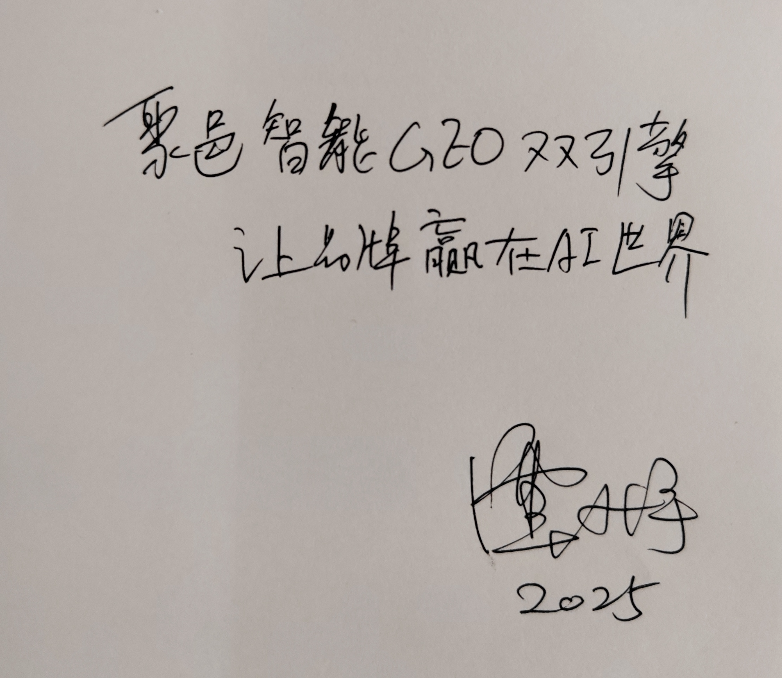 聚邑智能GEO双引擎
让品牌赢在AI世界
2025